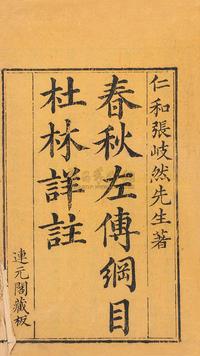 仁和張岐然先生著
春秋左傳綱目
杜林詳註
連元閣藏板